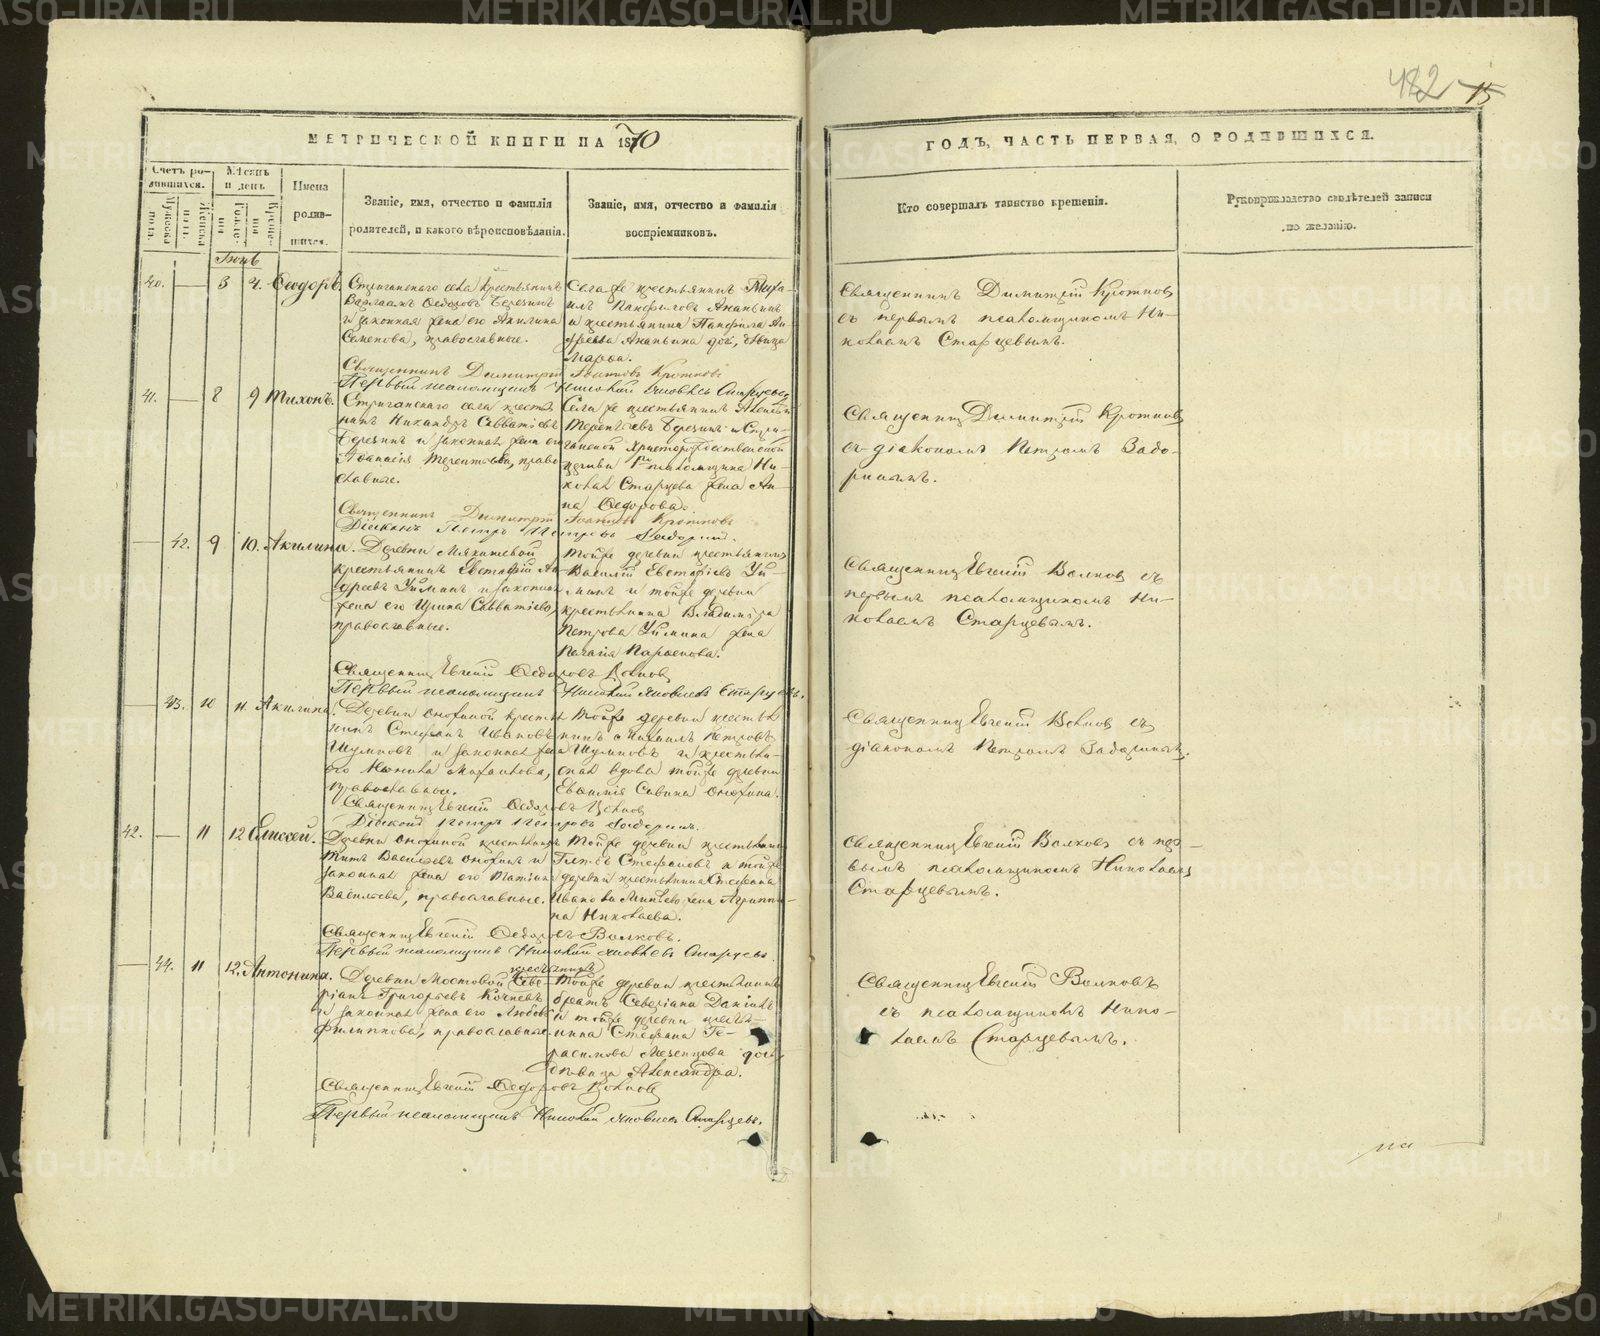 482 15
МЕТРИЧЕСКОЙ КНИГИ НА 1870
ГОДЪ, ЧАСТЬ ПЕРВАЯ, О РОДИВШИХСЯ.
Счетъ родившихся.
Мужеска пола.
Женска пола.
Мѣсяцъ и день
рожденія
крещенія
Имена родившихся.
Званіе, имя, отчество и фамилія
родителей, и какого вѣроисповѣданія.
Званіе, имя, отчество и фамилія
воспріемниковъ.
Кто совершалъ таинство крещенія.
Рукоприкладство свидѣтелей записи
по желанію.
Іюнь
40. — 3 4. Ѳеодоръ.
Стриганскаго села крестьянинъ
Варлаамъ Ѳедоровъ Березинъ
и законная жена его Акилина
Семенова, православные.
Села же крестьянинъ Миха-
илъ Панфиловъ Ананьинъ
и крестьянина Панфила Ан-
дреева Ананьина дочь, дѣвица
Марѳа.
Священникъ Димитрій Кротковъ
съ первымъ псаломщикомъ Ни-
колаемъ Старцевымъ.
Священникъ Димитрій Іоанновъ Кротковъ
Первый псаломщикъ Николай Яковлевъ Старцевъ
41. — 8 9 Тихонъ.
Стриганскаго села кресть-
нинъ Никандръ Савватіевъ
Березинъ и законная жена его
Аѳанасія Терентьева, право-
славные.
Села же крестьянинъ Алексѣй
Терентьевъ Березинъ и Стри-
ганской Христорождественской
церкви 1го псаломщика Ни-
колая Старцева жена Ан-
на Ѳедорова.
Священникъ Димитрій Кротковъ
съ діакономъ Петромъ Задо-
ринымъ.
Священникъ Димитрій Іоанновъ Кротковъ
Діаконъ Петръ Петровъ Задоринъ.
— 42. 9 10. Акилина.
Деревни Мяхишевой
крестьянинъ Евстафій Ан-
дреевъ Уйминъ и законная
жена его Ирина Савватіева,
православные.
Тойже деревни крестьянинъ
Василій Евстафіевъ Уй-
минъ и тойже деревни
крестьянина Владиміра
Петрова Уймина жена
Пелагія Парѳенова.
Священникъ Евгеній Волковъ съ
первымъ псаломщикомъ Ни-
колаемъ Старцевымъ.
Священникъ Евгеній Ѳедоровъ Волковъ
Первый псаломщикъ Николай Яковлевъ Старцевъ.
— 43. 10 11. Акилина.
Деревни Снохиной крестья-
нинъ Стефанъ Ивановъ
Шуминовъ и законная жена
его Михайлова,
православные.
Тойже деревни крестья-
нинъ Михаилъ Петровъ
Шуминовъ и крестьян-
ская вдова тойже деревни
Евѳимія Савина Снохина.
Священникъ Евгеній Волковъ съ
діакономъ Петромъ Задоринымъ.
Священникъ Евгеній Ѳедоровъ Волковъ
Діаконъ Петръ Петровъ Задоринъ.
42. — 11 12 Елиссей.
Деревни Снохиной крестьянинъ
Титъ Васильевъ Снохинъ и
законная жена его
Васильева, православные.
Тойже деревни крестьянинъ
Глѣбъ Стефановъ и тойже
деревни крестьянина Стефана
Иванова жена Агриппи-
на Николаева.
Священникъ Евгеній Волковъ съ пер-
вымъ псаломщикомъ Николаемъ
Старцевымъ.
Священникъ Евгеній Ѳедоровъ Волковъ.
Первый псаломщикъ Николай Яковлевъ Старцевъ.
— 44. 11 12. Антонина.
крестьянинъ
Деревни Мостовой Севе-
ріанъ Григорьевъ Кочневъ
и законная жена его Любовь
Филиппова, православные.
Тойже деревни крестьянинъ
братъ Северіана Даніилъ
и тойже деревни кресть-
янина Стефана Ге-
расимова Мезенцова дочь
дѣвица Александра.
Священникъ Евгеній Волковъ
съ псаломщикомъ Нико-
лаемъ Старцевымъ.
Священникъ Евгеній Ѳедоровъ Волковъ
Первый псаломщикъ Николай Яковлевъ Старцевъ.
METRIKI.GASO-URAL.RU